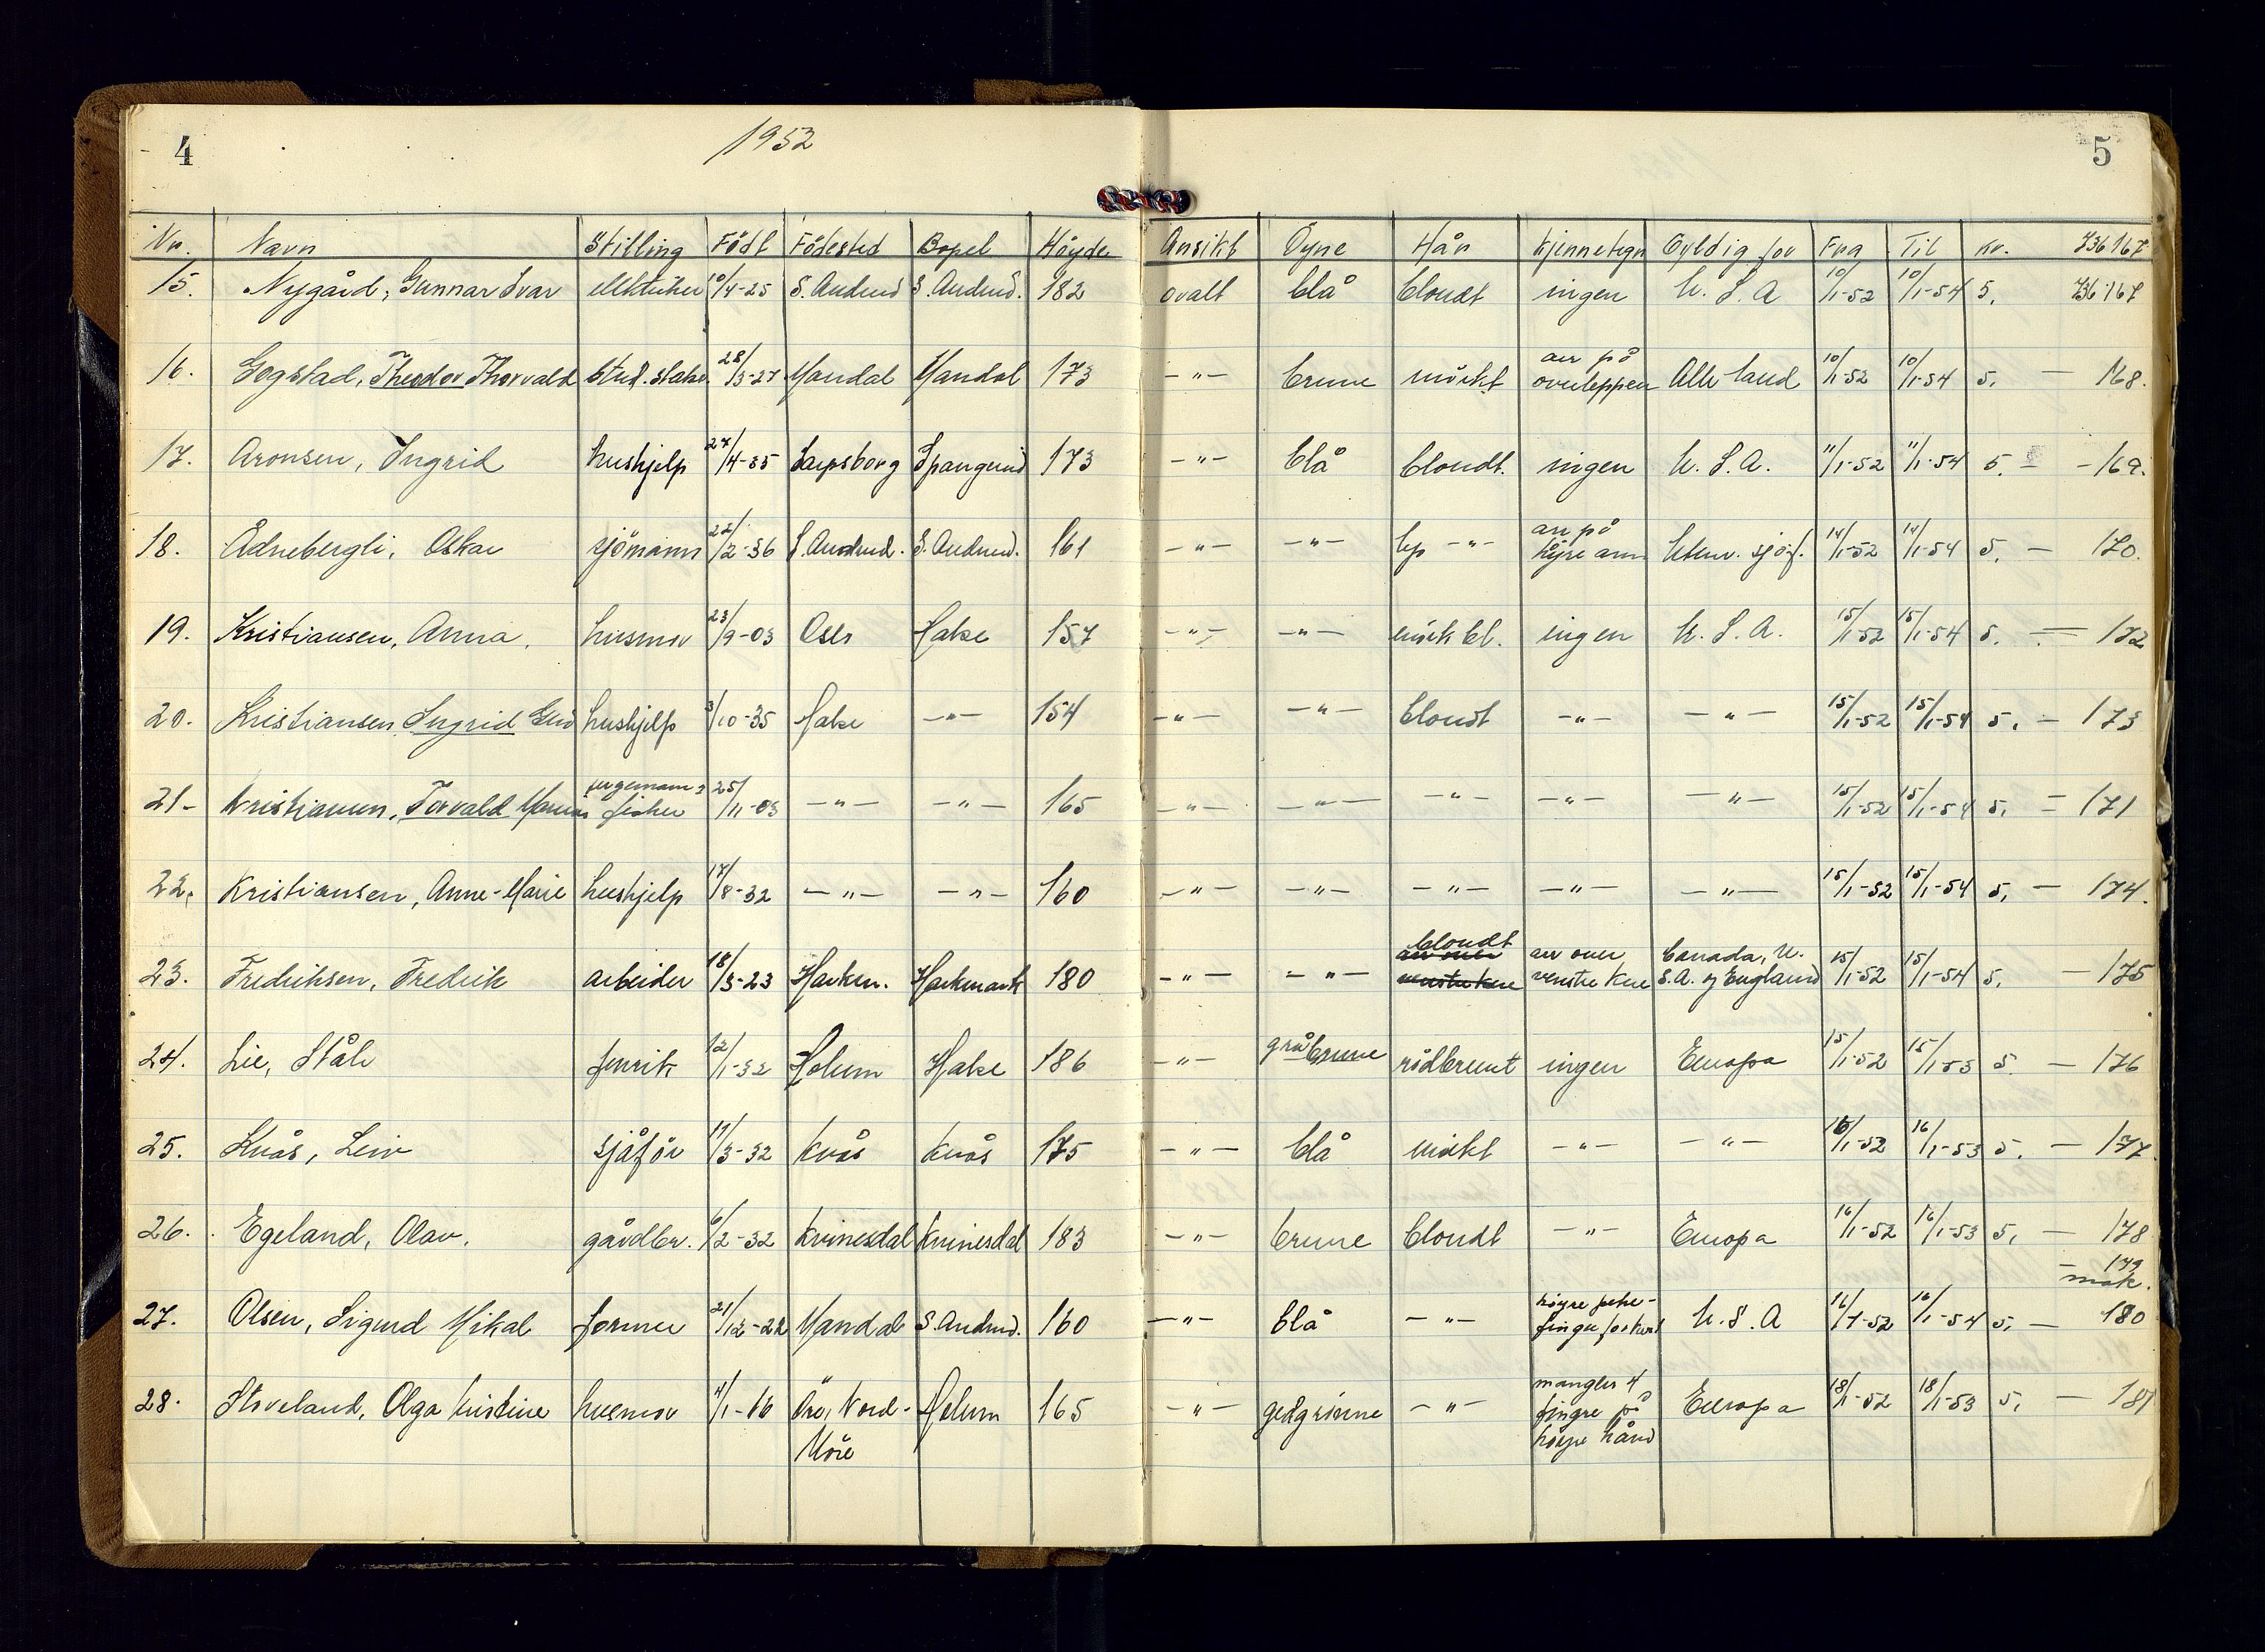 4
1952
5
Nr. Navn Stilling Født Fødested Bopel Høyde Ansikt Øyne Hår Kjennetegn Gyldig for Fra Til Kr. 736167
15. Nygård, Gunnar Ivar 10/4-25 S. Audned S. Audned. 182 ovalt blå blondt ingen U. S. A 10/1-52 10/1-54 5. 736167
16. Gogstad, Theodor Thorvald 28/3-27 Mandal Mandal 173 -"- brune mørkt arr på overleppen Alle land 10/1-52 10/1-54 5. — 168.
17. Aronsen, Ingrid hushjelp 27/4-35 Sarpsborg Spangereid 173 -"- blå blondt. ingen U. S. A. 11/1-52 11/1-54 5. - - 169.
18. Ådnebergli, Oskar sjömann 22/2-36 S. Audned. S. Audned. 161 -"- -"- -"- arr på høyre arm Utenr. sjøf. 14/1-52 14/1-54 5. — 170.
19. Kristiansen, Anna. husmor 23/9-03 Oslo Halse 157 -"- -"- mörk bl. ingen U. S. A. 15/1-52 15/1-54 5. — 172
20. Kristiansen Ingrid hushjelp 3/10-35 Halse -"- 154 -"- -"- blondt -"- -"- 15/1-52 15/1-54 5. — 173
21- Kristiansen, Torvald fisker 25/11-03 -"- -"- 165 -"- -"- -"- -"- -"- 15/1-52 15/1-54 5. — 171
22. Kristiansen, Anne-Marie hushjelp 17/8-32 -"- -"- 160 -"- -"- -"- -"- -"- 15/1-52 15/1-54 5. — 174.
23. Fredriksen, Fredrik arbeider 18/3-23 Harkm. Harkmark 180 -"- -"- blondt arr over venstre kne arr over venstre kne Canada, U. S. A. og England 15/1-52 15/1-54 5. — 175
24. Lie, Ståle fenrik 12/1-32 Holum Halse 186 -"- gråbrune rødbrunt ingen Europa 15/1-52 15/1-53 5. — 176
25. Kvås, Leiv sjåför 17/3-32 Kvås Kvås 175 -"- blå mörkt -"- -"- 16/1-52 16/1-53 5. — 177.
26. Egeland, Olav. gårdbr. 6/2-32 Kvinesdal Kvinesdal 183 -"- brune blondt -"- Europa 16/1-52 16/1-53 5. — 178
— 179
mak.
27. Olsen, Sigurd Mikal former 21/12-22 Mandal S. Audned. 160 -"- blå -"- høyre peke- finger forkort U. S. A 16/1-52 16/1-54 5. — 180
28. Stoveland, Olga Kristine husmor 4/1-16 Øre, Nord- Møre Holum 165 -"- -"- mangler 4 fingre på høyre hånd Europa 18/1-52 18/1-53 5. — 181